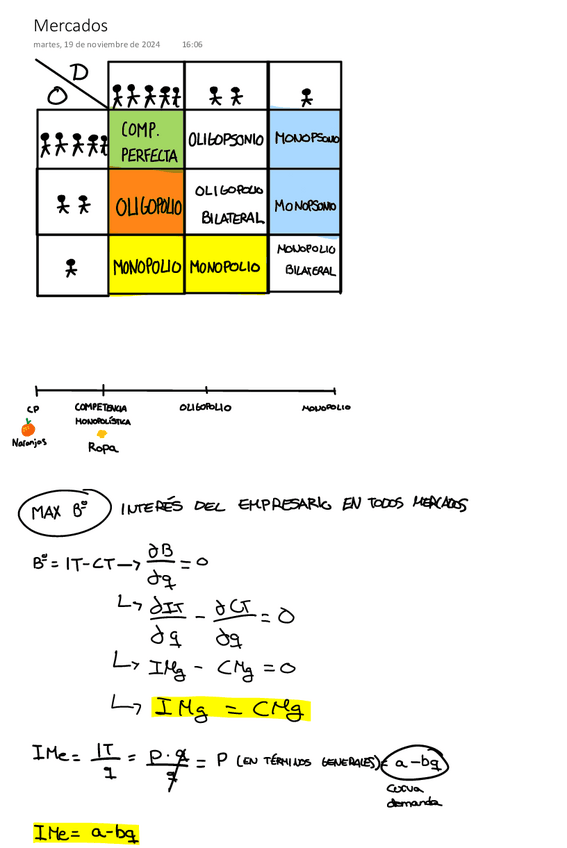 Mercados
martes, 19 de noviembre de 2024 16:06
D
O
COMP. PERFECTA OLIGOPSONIO MONOPSONIO
OLIGOPOLIO OLIGOPOLIO BILATERAL MONOPSONIO
MONOPOLIO MONOPOLIO MONOPOLIO BILATERAL
CP COMPETENCIA MONOPOLÍSTICA OLIGOPOLIO MONOPOLIO
Naranjas Ropa
MAX Bº INTERÉS DEL EMPRESARIO EN TODOS MERCADOS
Bº = IT - CT → ∂B/∂q = 0
↳ ∂IT/∂q - ∂CT/∂q = 0
↳ IMg - CMg = 0
↳ IMg = CMg
IMe = IT/q = P·q/q = P (EN TÉRMINOS GENERALES) = a-bq
curva
demanda
IMe = a-bq